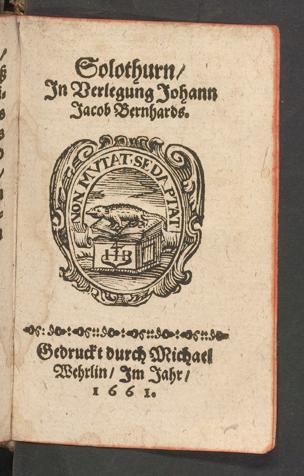 Solothurn/
In Verlegung Johann
Jacob Bernhards.
NON MVTAT SED APTAT
HB
Gedruckt durch Michael
Wehrlin/ Im Jahr/
1661.